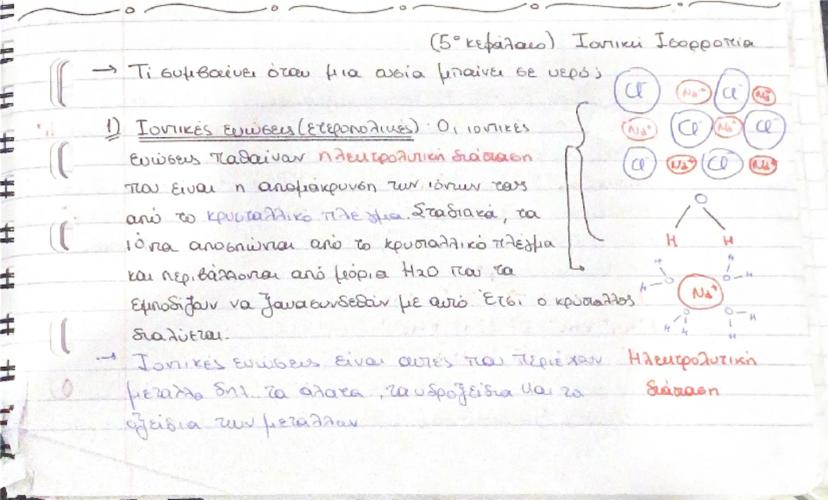 (5° κεφάλαιο) Ιοντική Ισορροπία
→ Τί συμβαίνει όταν μια ουσία μπαίνει σε νερό;
Cl⁻ Na⁺ Cl⁻ Na⁺
1) Ιοντικές ενώσεις (ετεροπολικές) Οι ιοντικές
Na⁺ Cl⁻ Na⁺ Cl⁻
ενώσεις παθαίνουν ηλεκτρολυτική διάσταση
Cl⁻ Na⁺ Cl⁻ Na⁺
που είναι η απομάκρυνση των ιόντων τους
O
από το κρυσταλλικό πλέγμα. Σταδιακά, τα
H H
ιόντα αποσπώνται από το κρυσταλλικό πλέγμα
και περιβάλλονται από μόρια H2O που τα
Na⁺
εμποδίζουν να ξανασυνδεθούν με αυτό. Έτσι ο κρύσταλλος
διαλύεται.
→ Ιοντικές ενώσεις είναι αυτές που περιέχουν
Ηλεκτρολυτική
μέταλλο δηλ. τα άλατα, τα υδροξείδια και τα
διάσταση
οξείδια των μετάλλων